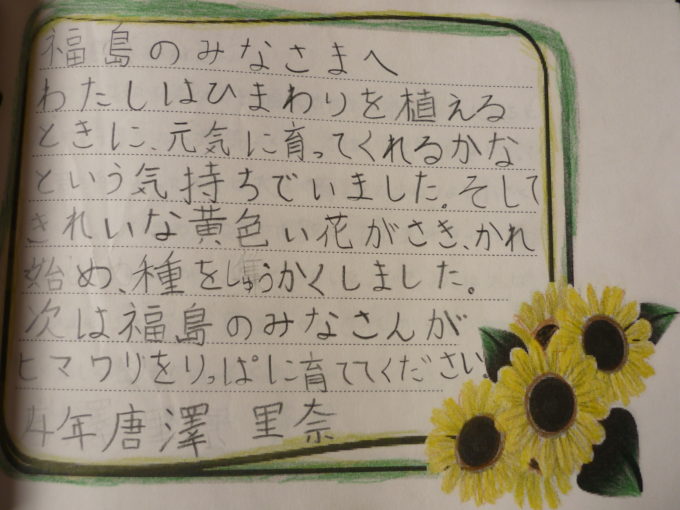 福島のみなさまへ
わたしはひまわりを植える
ときに、元気に育ってくれるかな
という気持ちでいました。そして
きれいな黄色い花がさき、かれ
始め、種をしゅうかくしました。
次は福島のみなさんが
ヒマワリをりっぱに育ててください。
4年唐澤 里奈